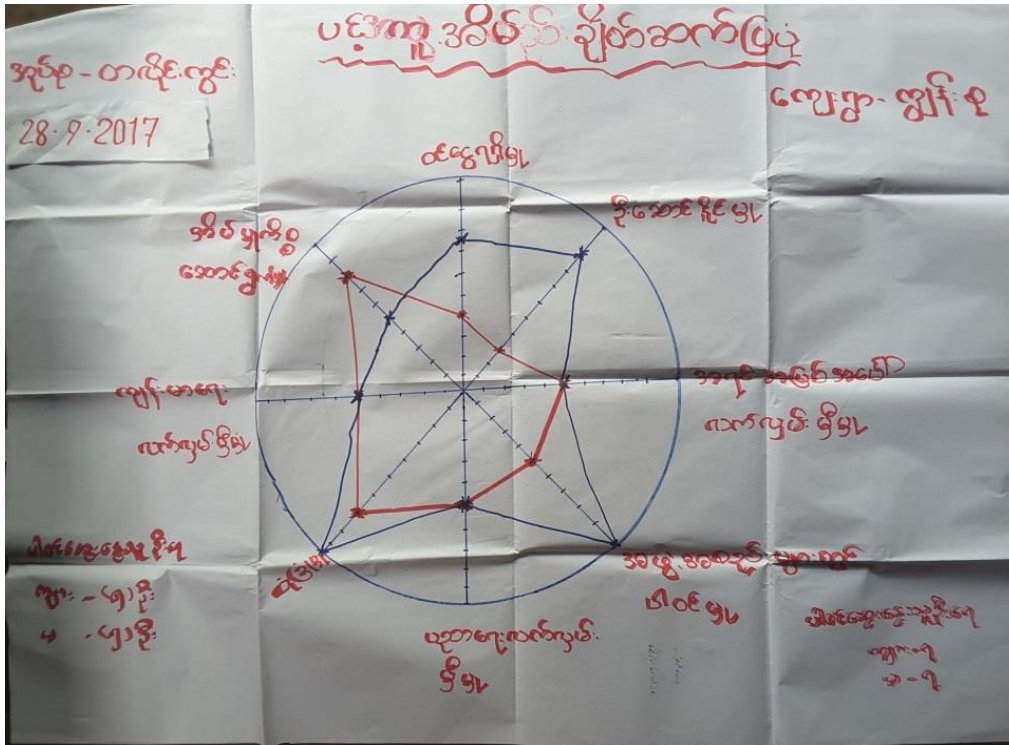 ပင့်ကူအိမ်နည်းချိတ်ဆက်ပြပုံ
အုပ်စု - တလိုင်းကွင်း
28.9.2017
ကျေးရွာ - ကျွန်းစု
ဝင်ငွေရရှိမှု
ဦးဆောင်နိုင်မှု
အိမ်မှုကိစ္စ
ဆောင်ရွက်မှု
ကျန်းမာရေး
လက်လှမ်းမှီမှု
အရင်းအမြစ်အပေါ်
လက်လှမ်းမှီမှု
ပညာရေးလက်လှမ်း
မှီမှု
အဖွဲ့အစည်းများတွင်
ပါဝင်မှု
ပါဝင်ဆွေးနွေးသူဦးရေ
ကျား - ၅ဦး
မ - ၅ဦး
ပါဝင်ဆွေးနွေးသူဦးရေ
ကျား - ၅
မ - ၅